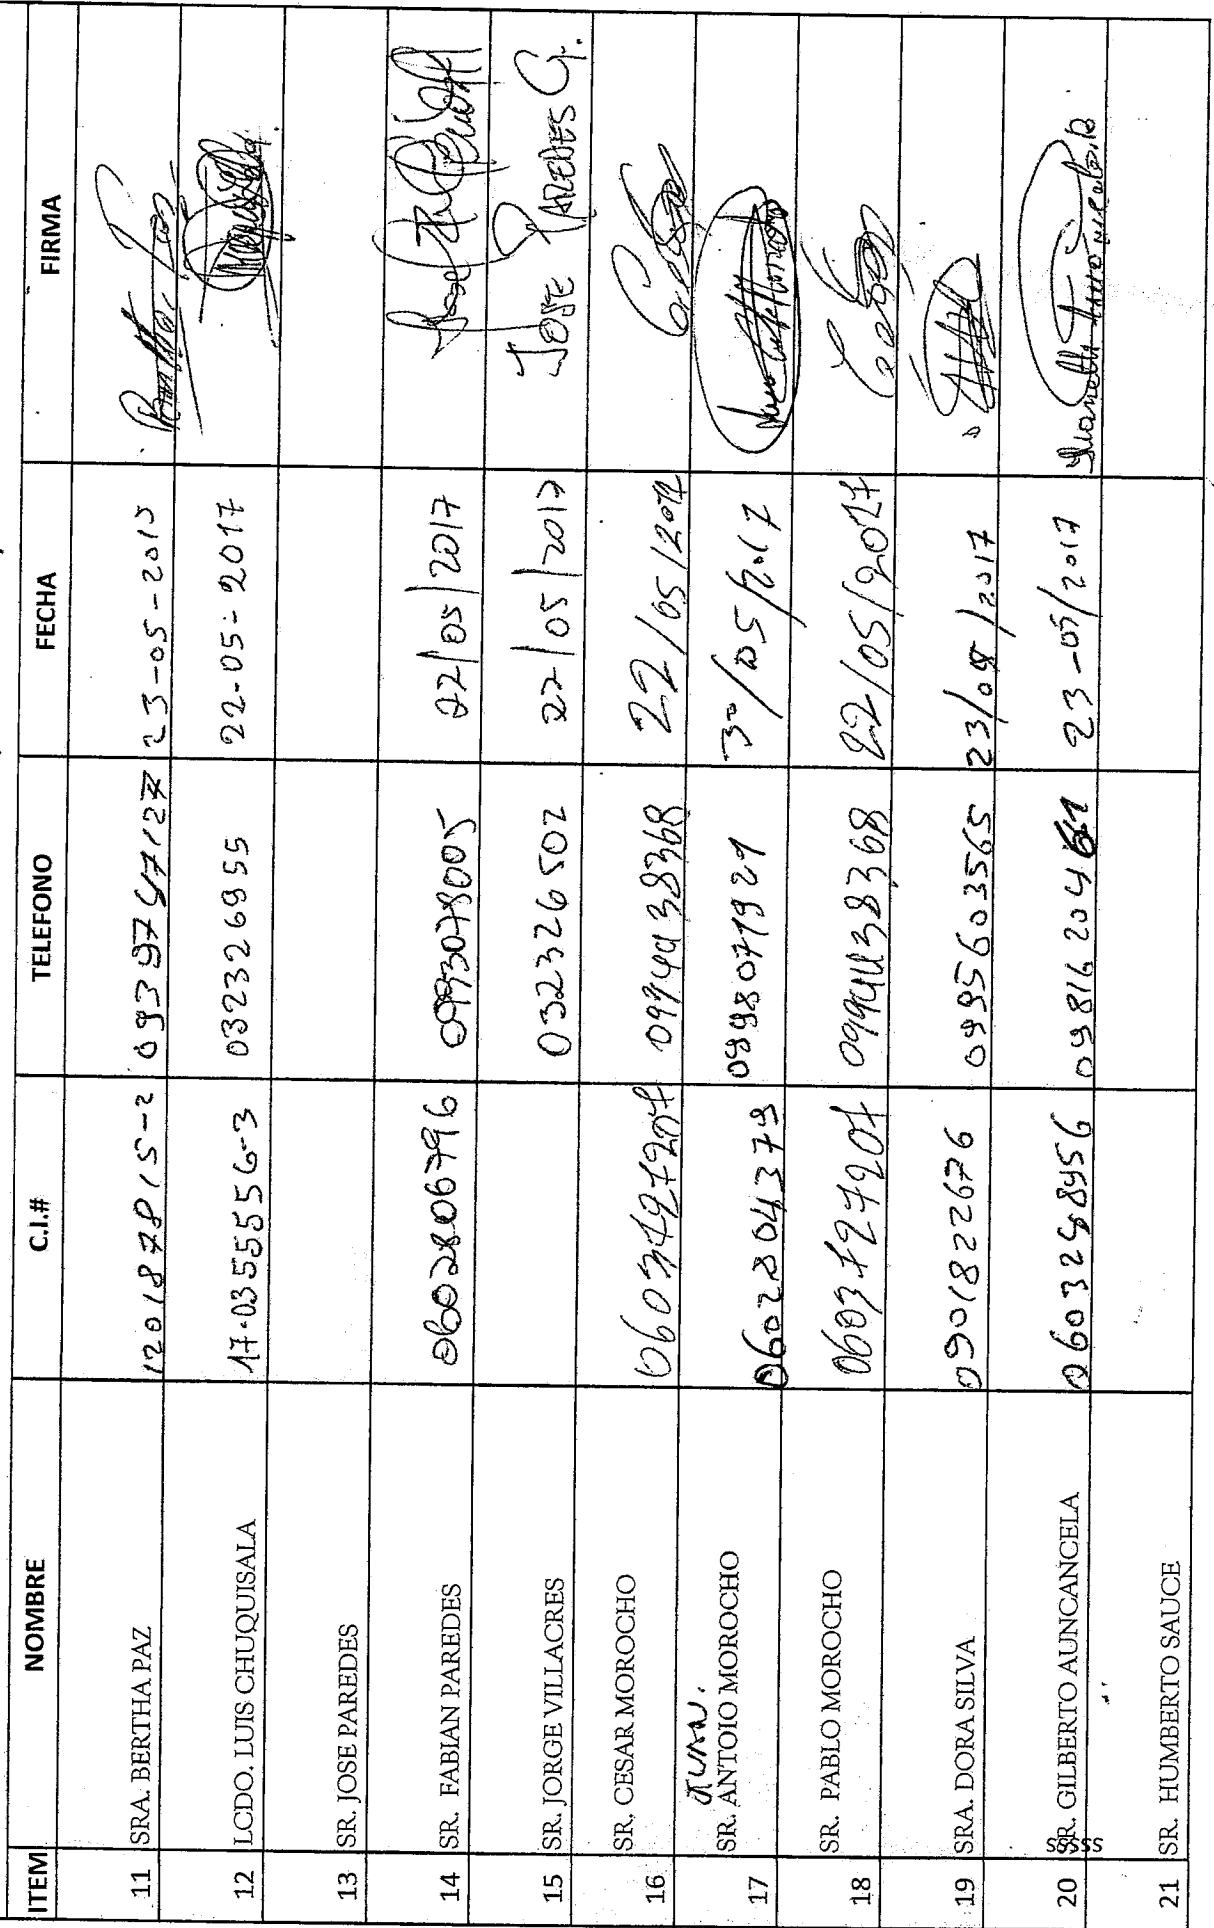 ITEM NOMBRE C.I.# TELEFONO FECHA FIRMA
11 SRA. BERTHA PAZ 120187815-2 0939747127 23-05-2015
12 LCDO. LUIS CHUQUISALA 17-0355556-3 032326955 22-05-2017
13 SR. JOSE PAREDES
14 SR. FABIAN PAREDES 0602806796 0993078005 22/05/2017
15 SR. JORGE VILLACRES 032326502 22/05/2017 JOSE PAREDES G.
16 SR. CESAR MOROCHO 0603727207 0994438368 22/05/2017 Cesar
JUAN.
17 SR. ANTOIO MOROCHO 0602204379 0998071921 30/05/2017
18 SR. PABLO MOROCHO 0603727207 0994438368 22/05/2017 Cesar
19 SRA. DORA SILVA 0901822676 0995603565 23/05/2017
20 SR. GILBERTO AUNCANCELA 0603248956 0981620461 23-05/2017
sssss
21 SR. HUMBERTO SAUCE